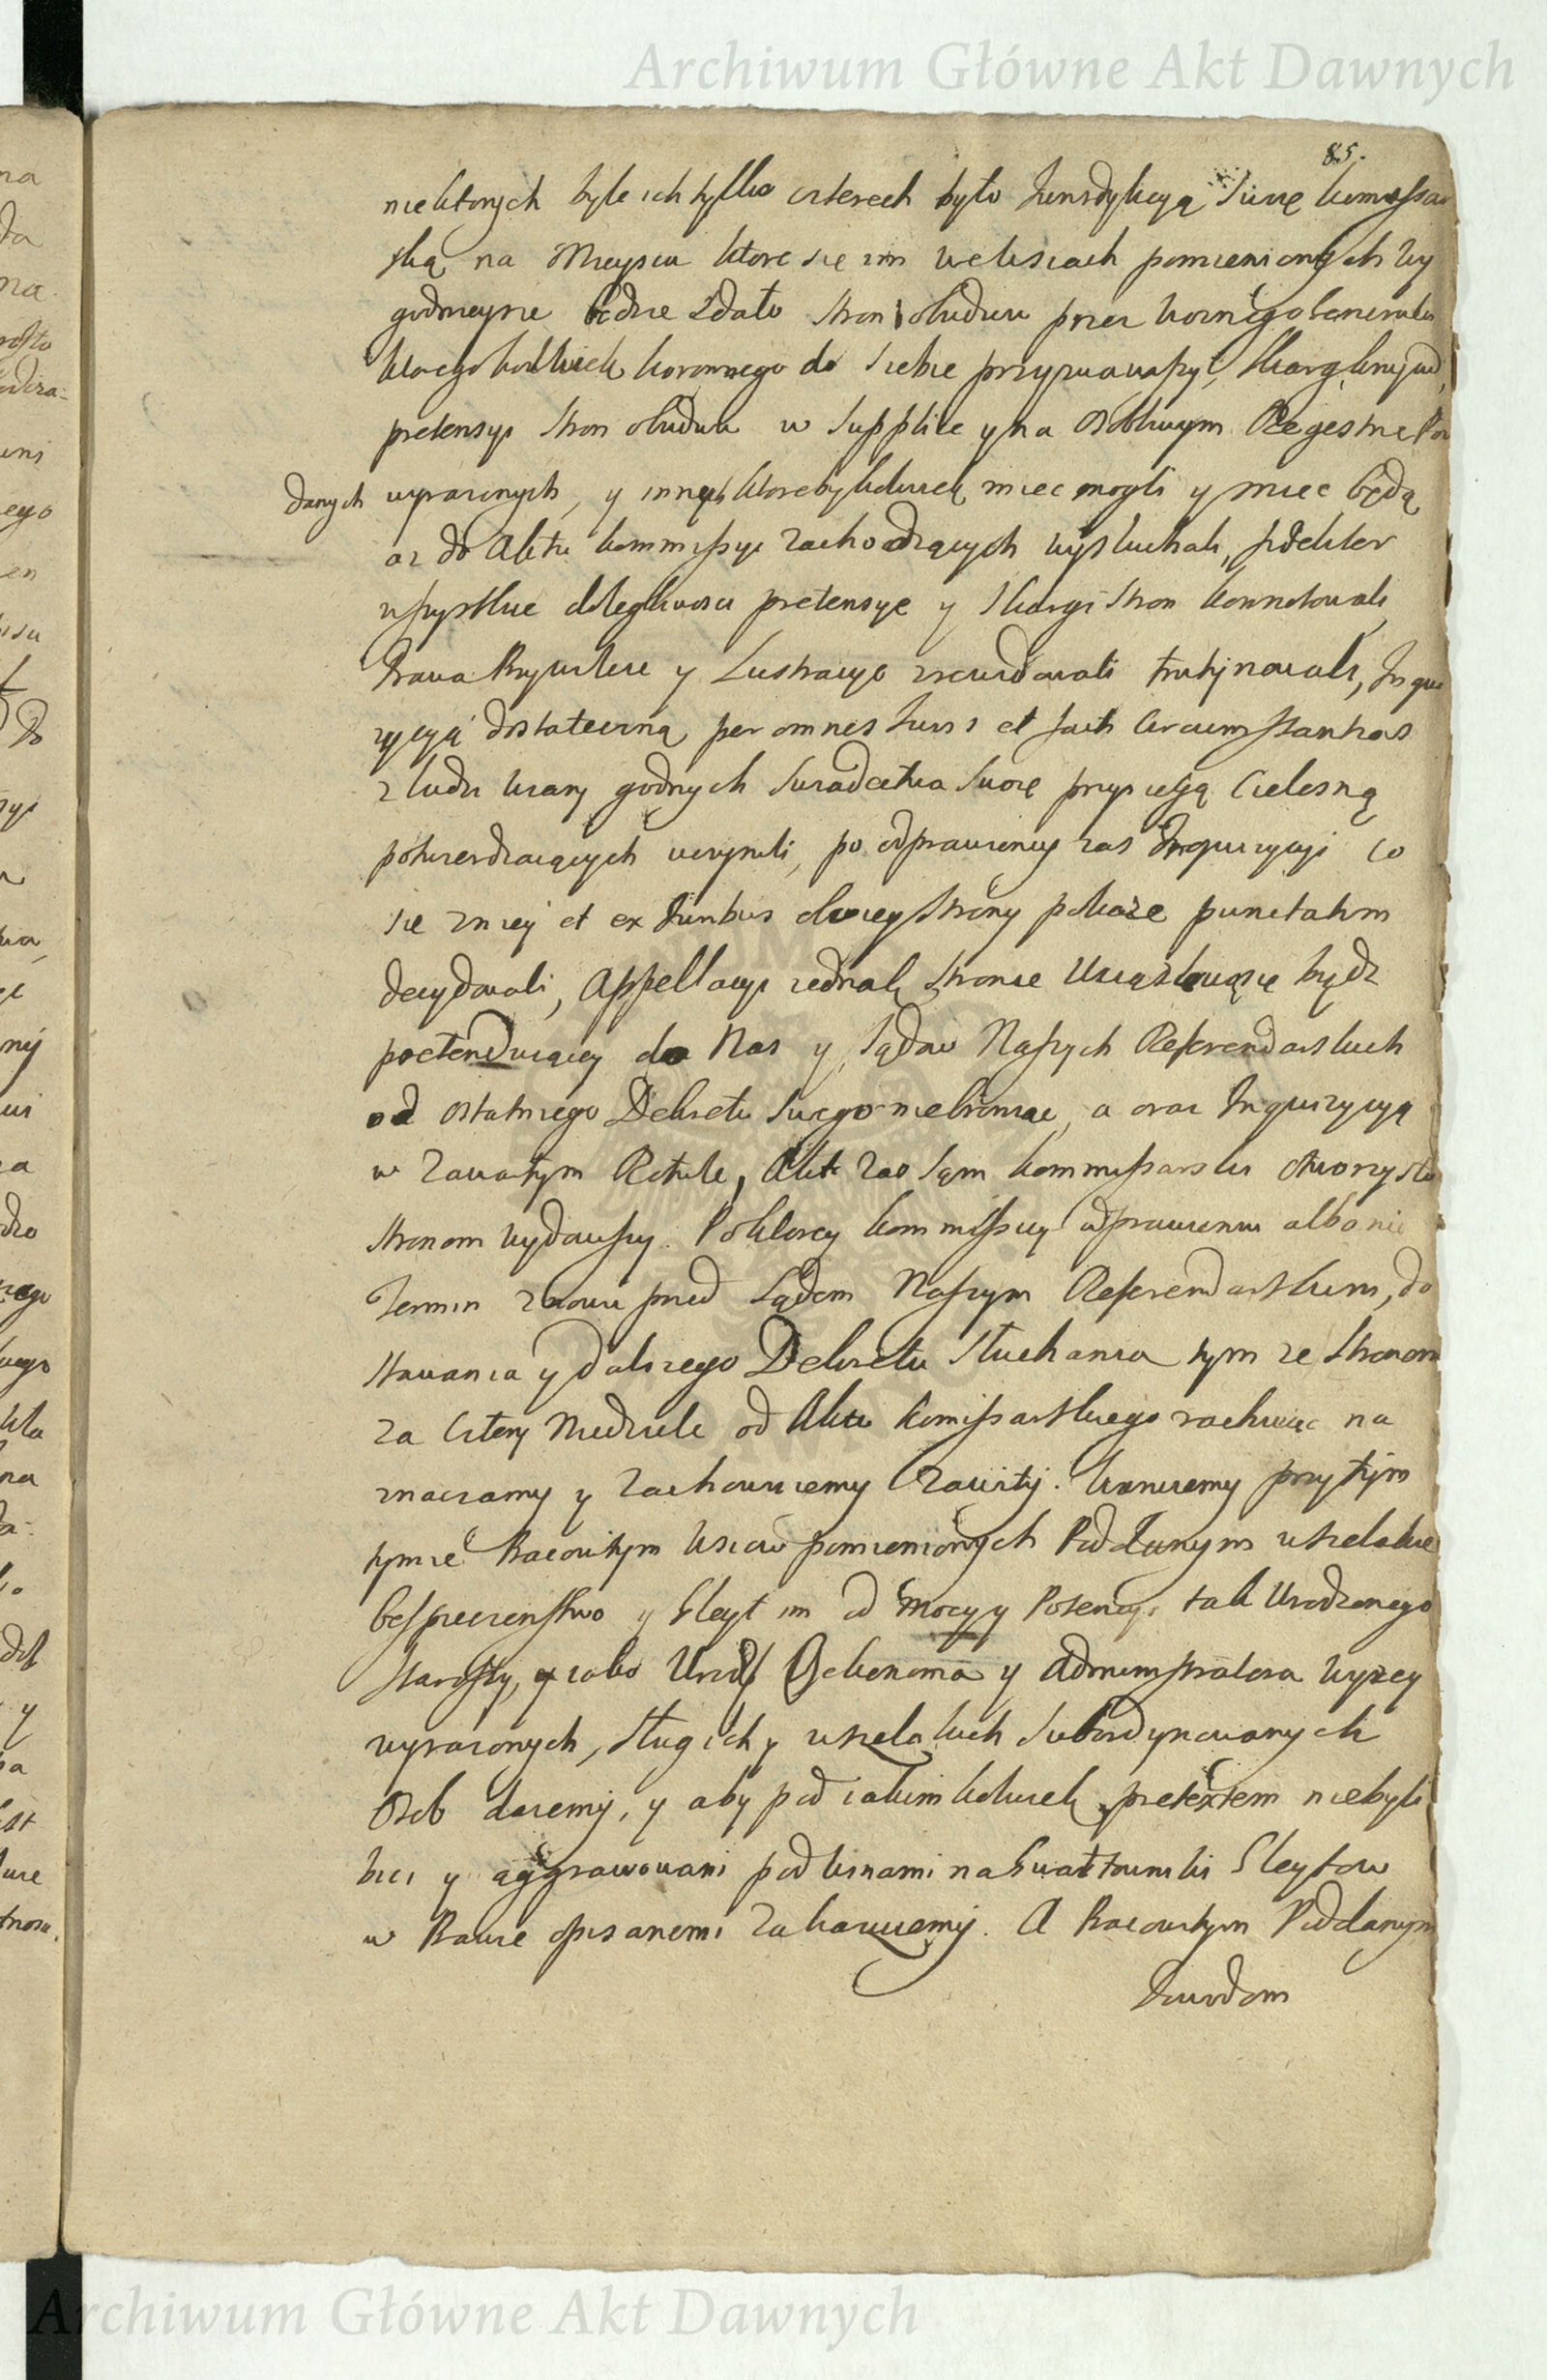 Archiwum Główne Akt Dawnych
85.
niektorych byle ich tylko czterech było Jurisdykcyą swoię kommissar
ską na Mieyscu ktore się im we wsiach pomienionych wy
godnieysze będzie zdało stron obudwu przez woznego Generała
ktoregokolwiek koronnego do siebie przyzwawszy, skarg krzywd,
pretensyi stron obudwu w supplice y na osobliwym Regestrze Po
danych wyrazonych, y innych ktoreby kolwiek miec mogli y miec będą
az do Aktu kommissyi zachodzących wysłuchali,
wszystkie dolegliwosci pretensye y skargi stron konnotowali,
Prawa Przywileie y Lustracye zrewidowali trutynowali, Inqui
zycyą dostateczną per omnes Juris et facti circumstantias
z ludzi wiary godnych swiadectwa swoie przysięgą Cielesną
potwierdzaiących uczynili, po odprawioney zas Inquizycyi co
się z niey et ex Juribus oboiey strony pokaze punctatim
decydowali, Appellacyi iednak stronie Uciązliwosc bydz
praetenduiącey do Nas y Sądow Naszych Referendarskich
od ostatniego Dekretu swego niebroniąc, a oraz Inquizycyą
w zawartym Rotule, Akt zas sąm kommissarski otworzysto
stronom wydawszy. Po ktorey kommissyey odprawieniu albo nie
Termin znowu przed Sądem Naszym Referendarskim, do
stawania y dalszego Dekretu słuchania tym ze stronom
za cztery Niedziele od Aktu kommissarskiego rachuiąc na
znaczamy y zachowuiemy Zawity. waruiemy przy tym
tymze Pracowitym wsiow pomienionych Poddanym wszelakie
bespieczenstwo y Gleyt im od mocy y Potencyi tak Urodzonego
Starosty, y iako Urodz Oekonoma y Administratora wyzey
wyrazonych, sług ich y wszelakich subordynowanych
Osob daiemy, y aby pod iakimkolwiek pretextem niebyli
bici y aggrawowani pod winami na Gwałtowniki Gleytow
w Prawie opisanemi zakazuiemy. A Pracowitym Poddanym
Archiwum Główne Akt Dawnych